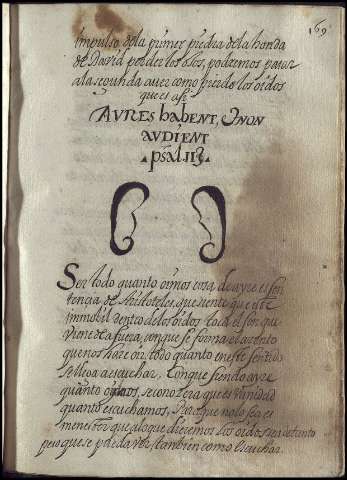 169
impulso de la primer piedra de la honda
de David perder los ojos, podremos pasar
a la segunda a ver como pierde los oidos
que es asi
AVRES habent, & non
AVDIENT
psal 113
Ser todo quanto oimos cosa de ayre es sen
tencia de Aristoteles, que siente que este
immobil dentro de los oidos toca el son que
viene de afuera, con que se forma el acento
que nos haze oir todo quanto en este sentido
se llega a escuchar. Con que siendo ayre
quanto oimos, se conozera que es vanidad
quanto escuchamos. Para que no lo sea es
menester que a lo que dieremos los oidos sea de tanto
peso que se pueda ver tambien como escuchar.